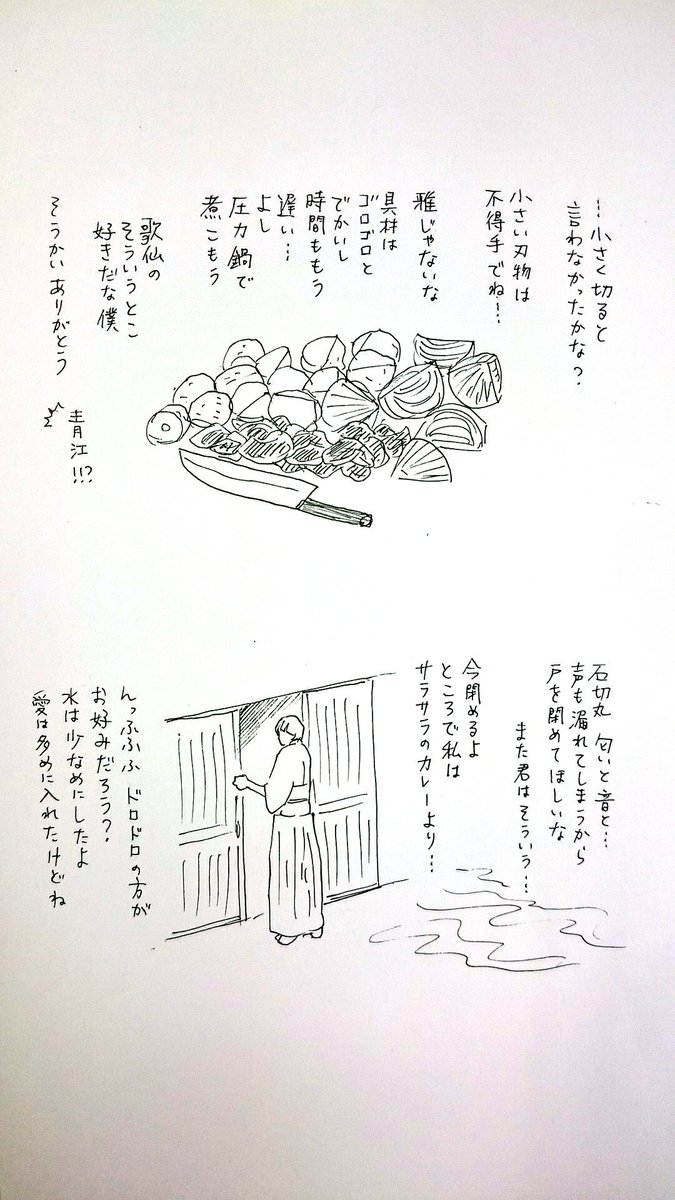 …小さく切ると
言わなかったかな？
小さい刃物は
不得手でね…
雅じゃないな
具材は
ゴロゴロと
でかいし
時間ももう
遅い…
よし
圧力鍋で
煮こもう
歌仙の
そういうとこ
好きだな僕
そうかい ありがとう
青江!!?
石切丸 匂いと音と…
声も漏れてしまうから
戸を閉めてほしいな
また君はそういう…
今閉めるよ
ところで私は
サラサラのカレーより…
んっふふふ ドロドロの方が
お好みだろう？
水は少なめにしたよ
愛は多めに入れたけどね